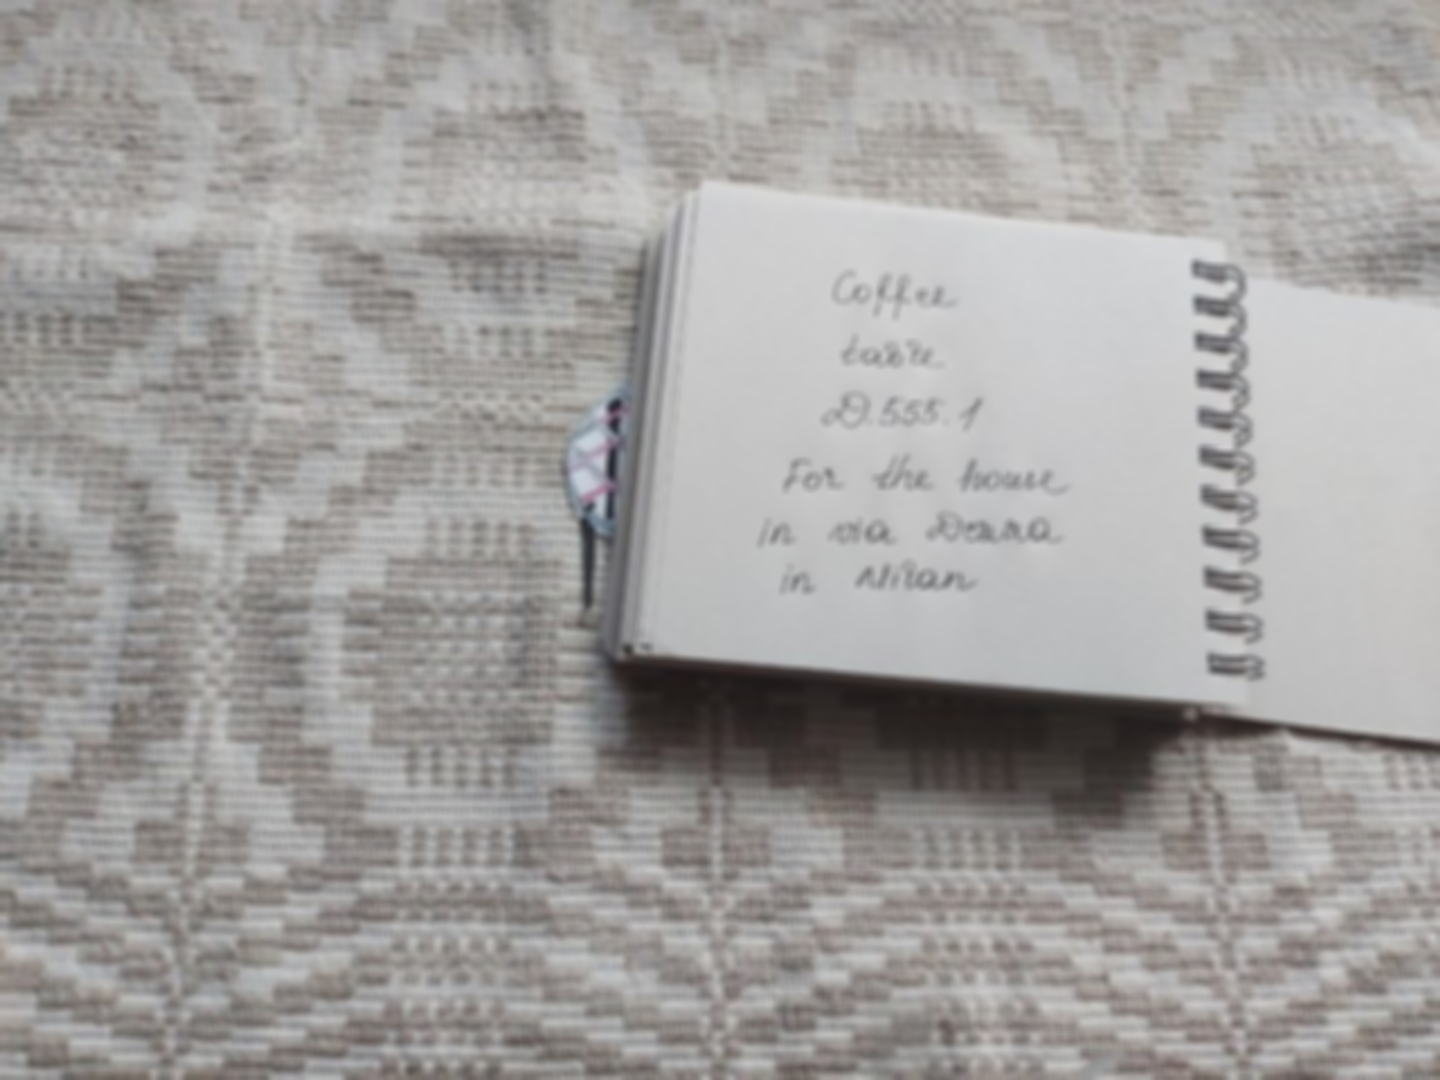 Coffee
table
D.555.1
For the house
in via Dezza
in Milan